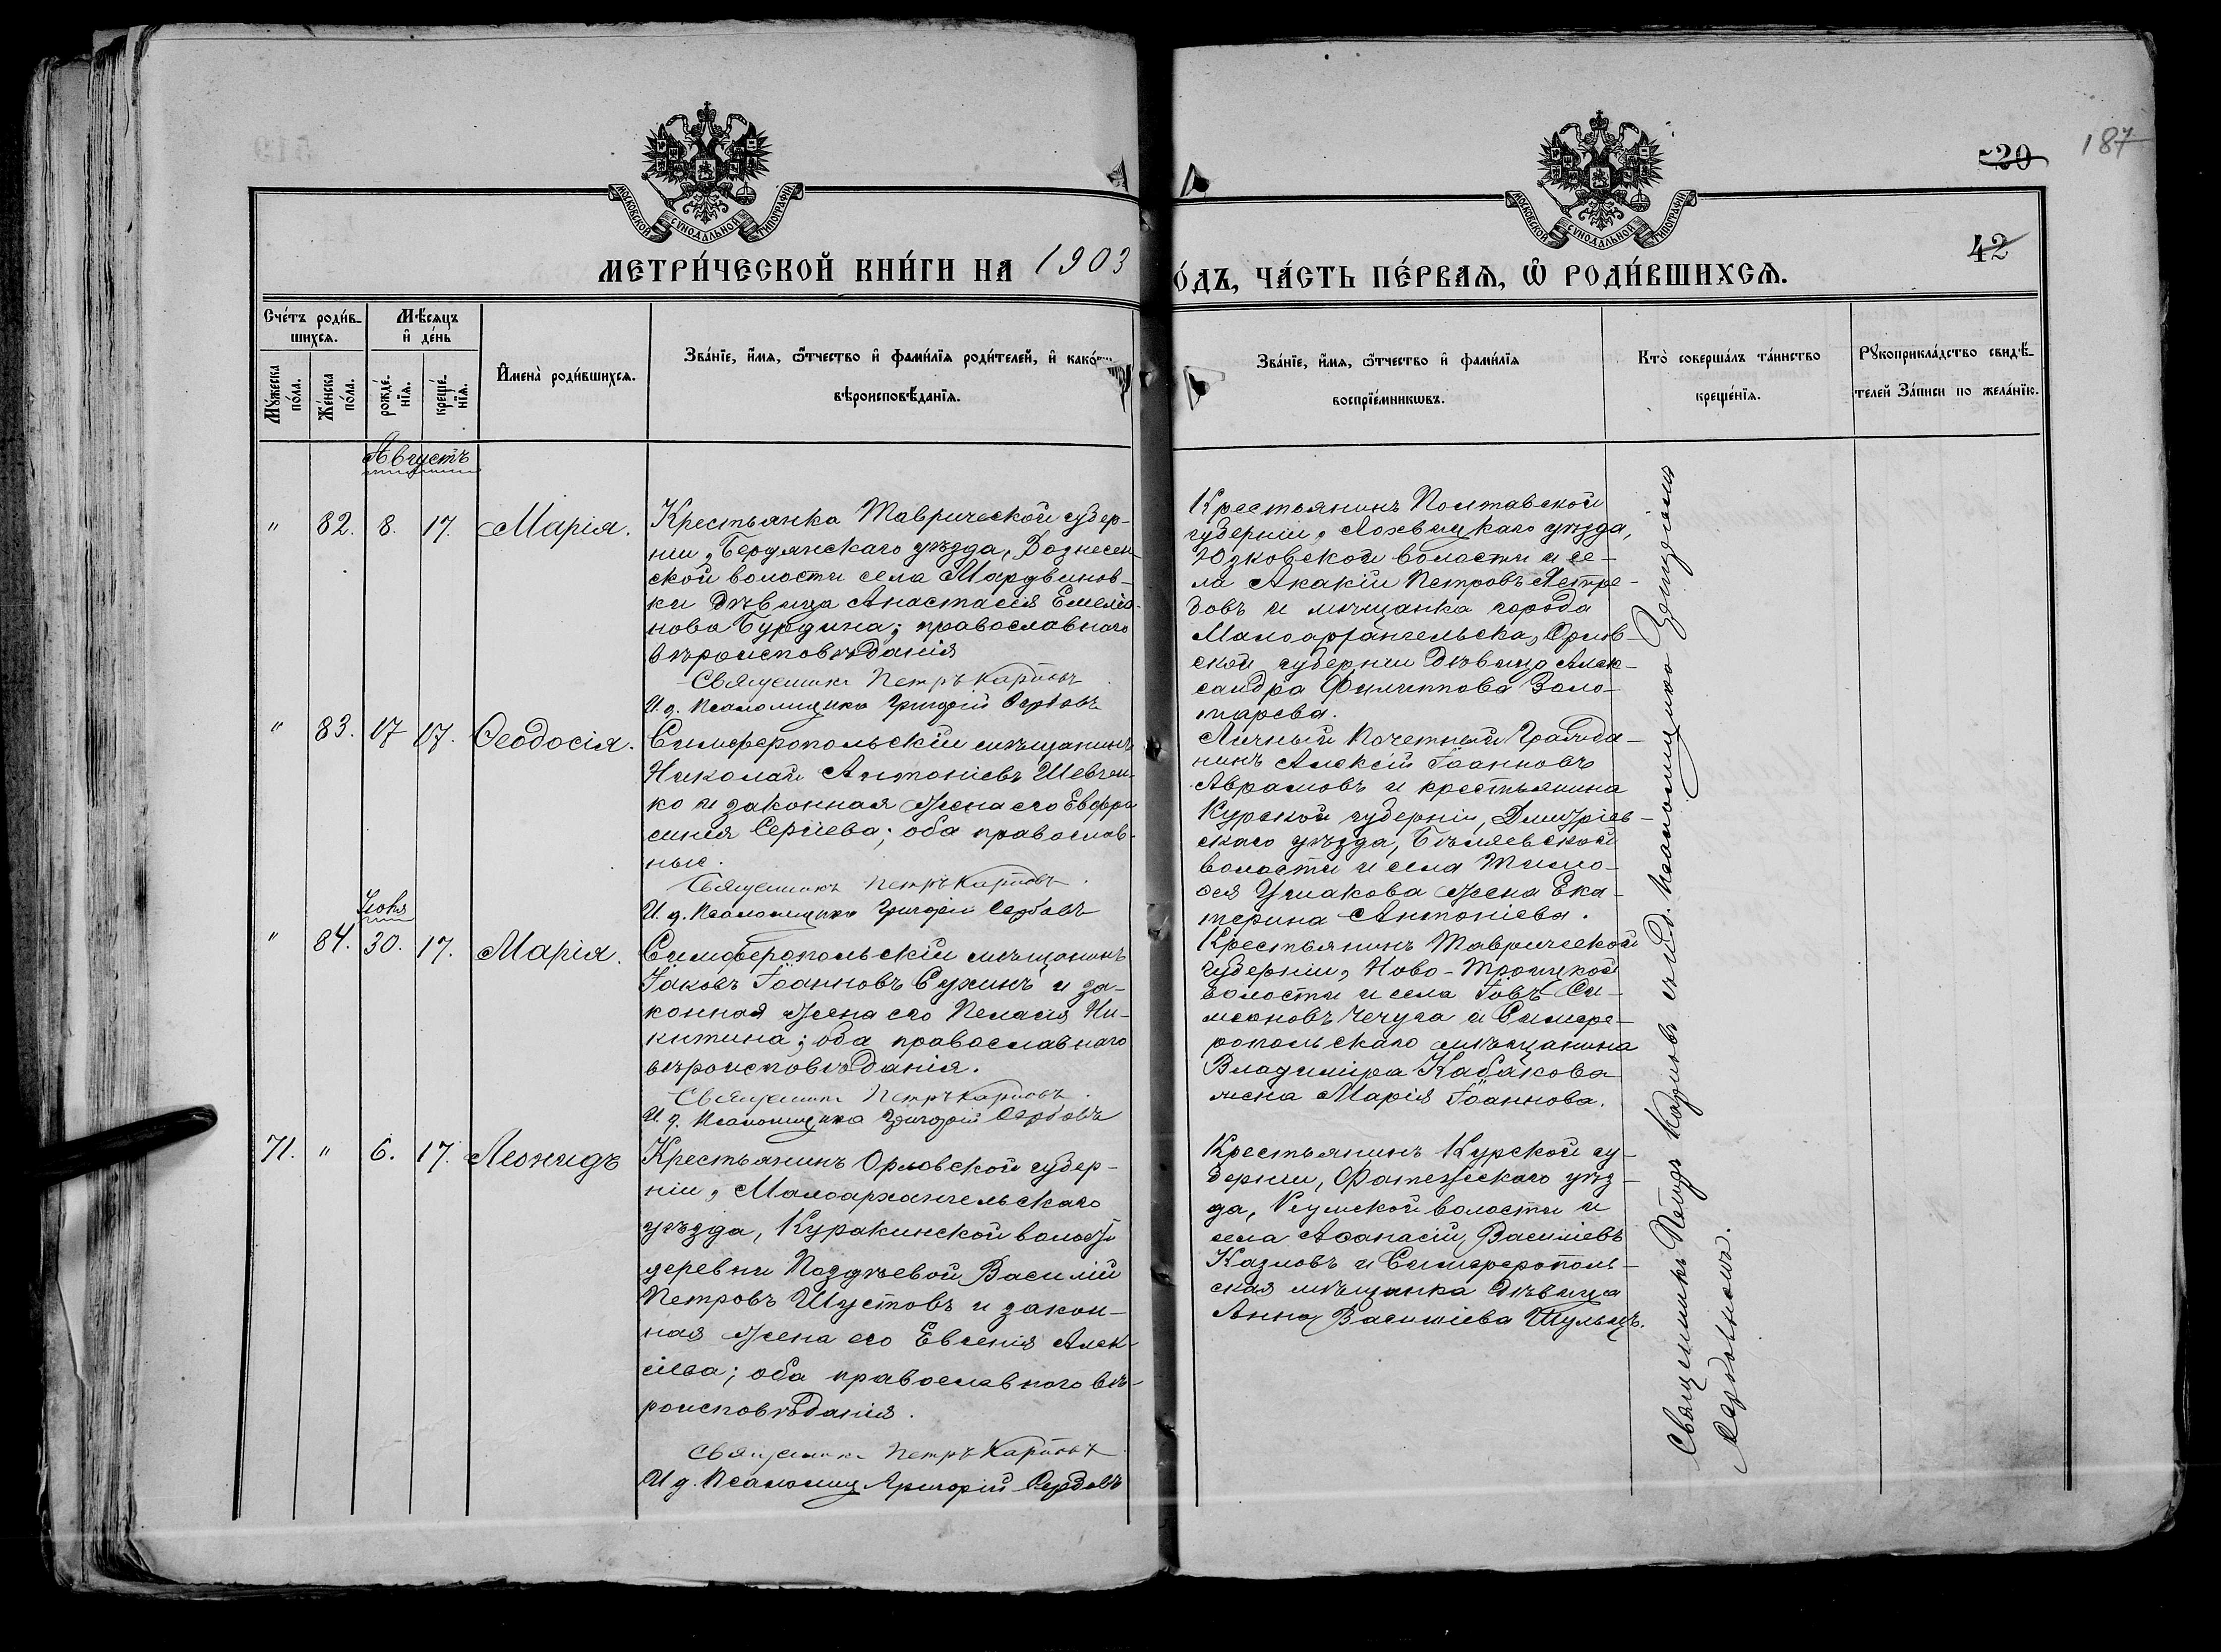 187
20
МОСКОВСКОЙ СѴНОДАЛЬНОЙ ТИПОГРАФІИ
МОСКОВСКОЙ СѴНОДАЛЬНОЙ ТИПОГРАФІИ
42
МЕТРИ́ЧЕСКОЙ КНИ́ГИ НА 1903
О́ДЪ, ЧА́СТЬ ПЕ́РВАѦ, Ѽ РОДИ́ВШИХСѦ.
Сче́тъ роди́в-
шихсѧ.
Мѣ́сѧцъ
и҆ де́нь
Му́жеска по́ла.
Же́нска по́ла.
рожде́-
нїѧ.
креще́-
нїѧ.
И҆мена̀ роди́вшихсѧ.
Зва́нїе, и҆́мѧ, ѻ҆́тчество и҆ фами́лїѧ роди́телей, и҆ како́
вѣроисповѣ́данїѧ.
Зва́нїе, и҆́мѧ, ѻ҆́тчество и҆ фами́лїѧ
воспрїе́мникѡвъ.
Кто̀ соверша́лъ та́инство
креще́нїѧ.
Рꙋкоприкла́дство свидѣ́-
телей За́писи по жела́нїю.
Августъ
" 82. 8. 17. Марія.
Крестьянка Таврической губер-
ніи, Бердянскаго уѣзда, Вознесен-
ской волости села Мордвинов-
ки дѣвица Анастасія Емелiа-
нова Бурдина; православнаго
вѣроисповѣданія
Священникъ Петръ Карповъ
И. д. Псаломщика Григорій Сербовъ
Крестьянинъ Полтавской
губерніи, Лохвицкаго уѣзда,
Юзковской волости и се-
ла Акакій Петровъ
довъ и мѣщанка города
Малоархангельска, Орлов-
ской губерніи дѣвица Алек-
сандра Филиппова Золо-
тарева.
" 83. 17 17. Ѳеодосія.
Симферопольскій мѣщанинъ
Николай Антоніевъ Шевчен-
ко и законная жена его Евфро
синія Сергіева; оба православ-
ные.
Священникъ Петръ Карповъ
И. д. Псаломщика Григорій Сербовъ
Личный Почетный Гражда-
нинъ Алексій Іоанновъ
Аврамовъ и крестьянина
Курской губерніи, Дмитріев-
скаго уѣзда, Бѣляевской
волости и села Тимо-
ѳея Ушакова жена Ека-
терина Антоніева.
Іюня
" 84. 30. 17. Марія.
Симферопольскій мѣщанинъ
Іаковъ Іоанновъ Сухинъ и за-
конная жена его Пелагія Ни-
китина; оба православнаго
вѣроисповѣданія.
Священникъ Петръ Карповъ
И. д. Псаломщика Григорій Сербовъ
Крестьянинъ Таврической
губерніи, Ново-Троицкой
волости и села Іовъ Си-
меоновъ Чечуга и Симфе-
ропольскаго мѣщанина
Владиміра Кабакова
жена Марія Іоаннова.
71. " 6. 17. Леонидъ
Крестьянинъ Орловской губер-
ніи, Малоархангельскаго
уѣзда, Куракинской волости
деревни Поздѣевой Василій
Петровъ Шустовъ и закон-
ная жена его Евгенія Алек-
сіева; оба православнаго вѣ-
роисповѣданія.
Священникъ Петръ Карповъ
И д. Псаломщ Григорій Сербовъ
Крестьянинъ Курской гу-
берніи, Фатежскаго уѣз-
да, волости и
села Аѳанасій Василіевъ
Казловъ и Симферополь-
ская мѣщанка дѣвица
Анна Василіева Шульцъ.
Священникъ Петръ Карповъ съ и. д. Псаломщика Григоріемъ
Сербовымъ.